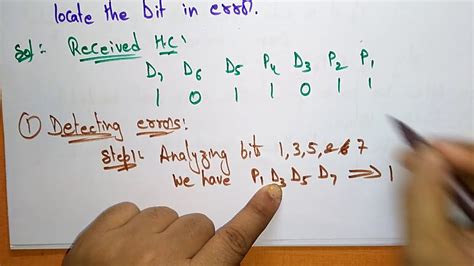 locate the bit in error.
Sol:- Received H.C:
D7 D6 D5 P4 D3 P2 P1
1 0 1 1 0 1 1
① Detecting errors:
Step1: Analyzing bit 1,3,5, 7
we have P1 D3 D5 D7 ⇒ 1